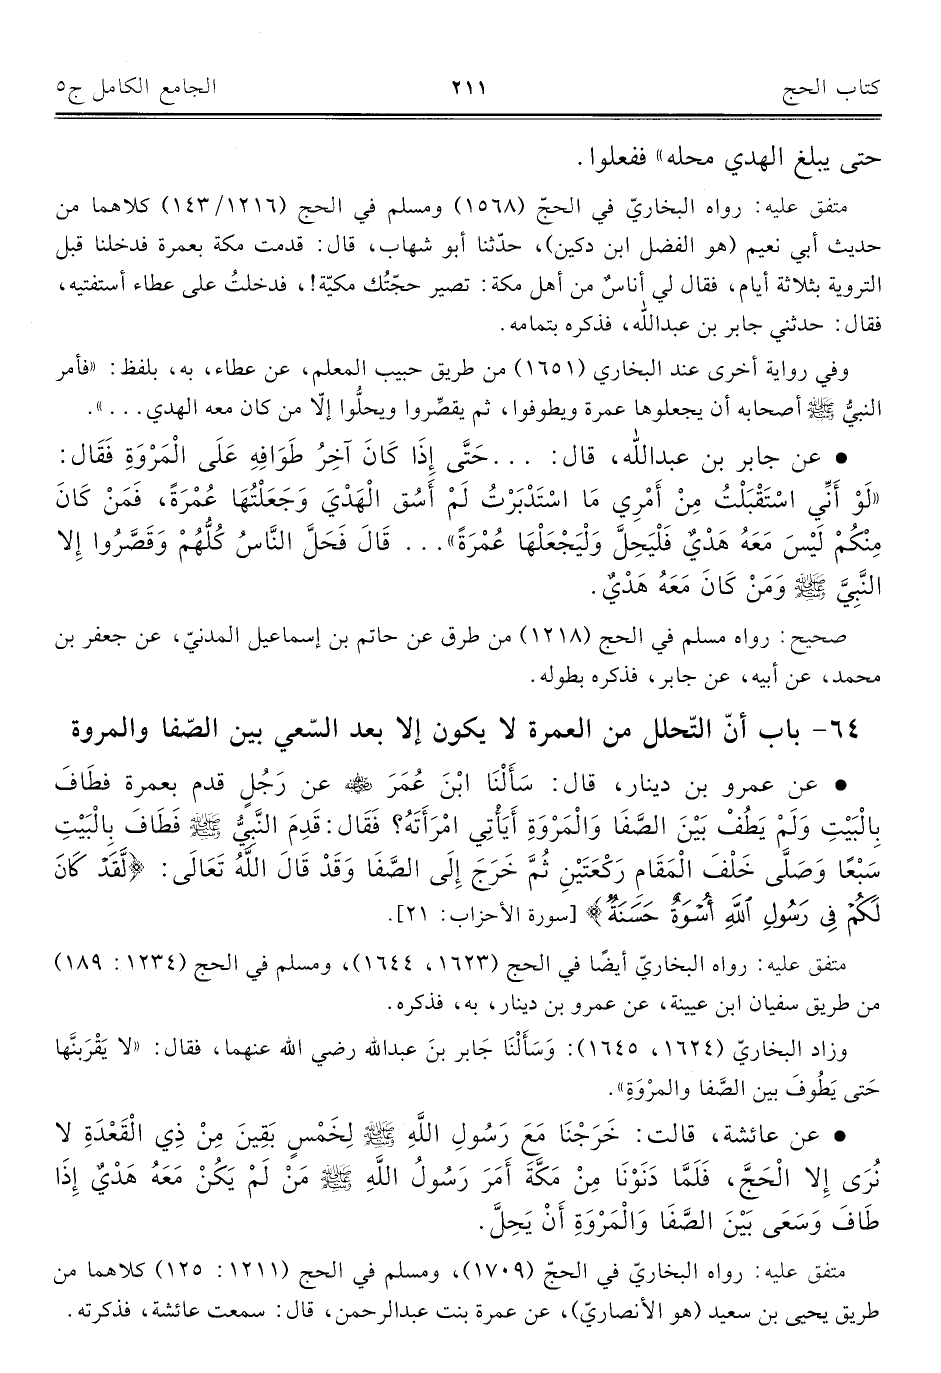 كتاب الحج ٢١١ الجامع الكامل ج٥
حتى يبلغ الهدي محله» ففعلوا.
متفق عليه: رواه البخاريّ في الحجّ (١٥٦٨) ومسلم في الحج (١٤٣/١٢١٦) كلاهما من
حديث أبي نعيم (هو الفضل ابن دكين)، حدّثنا أبو شهاب، قال: قدمت مكة بعمرة فدخلنا قبل
التروية بثلاثة أيام، فقال لي أناسٌ من أهل مكة: تصير حجّتُك مكيّة!، فدخلتُ على عطاء أستفتيه،
فقال: حدثني جابر بن عبدالله، فذكره بتمامه.
وفي رواية أخرى عند البخاري (١٦٥١) من طريق حبيب المعلم، عن عطاء، به، بلفظ: «فأمر
النبيُّ ﷺ أصحابه أن يجعلوها عمرة ويطوفوا، ثم يقصِّروا ويحلُّوا إلّا من كان معه الهدي...».
● عن جابر بن عبدالله، قال: ...حَتَّى إِذَا كَانَ آخِرُ طَوَافِهِ عَلَى الْمَرْوَةِ فَقَالَ:
«لَوْ أَنِّي اسْتَقْبَلْتُ مِنْ أَمْرِي مَا اسْتَدْبَرْتُ لَمْ أَسُق الْهَدْيَ وَجَعَلْتُهَا عُمْرَةً، فَمَنْ كَانَ
مِنْكُمْ لَيْسَ مَعَهُ هَدْيٌ فَلْيَحِلَّ وَلْيَجْعَلْهَا عُمْرَةً»... قَالَ فَحَلَّ النَّاسُ كُلُّهُمْ وَقَصَّرُوا إِلا
النَّبِيَّ ﷺ وَمَنْ كَانَ مَعَهُ هَدْيٌ.
صحيح: رواه مسلم في الحج (١٢١٨) من طرق عن حاتم بن إسماعيل المدنيّ، عن جعفر بن
محمد، عن أبيه، عن جابر، فذكره بطوله.
٦٤- باب أنّ التّحلل من العمرة لا يكون إلا بعد السّعي بين الصّفا والمروة
● عن عمرو بن دينار، قال: سَأَلْنَا ابْنَ عُمَرَ عن رَجُلٍ قدم بعمرة فطَافَ
بِالْبَيْتِ وَلَمْ يَطُفْ بَيْنَ الصَّفَا وَالْمَرْوَةِ أَيَأْتِي امْرَأَتَهُ؟ فَقَالَ: قَدِمَ النَّبِيُّ ﷺ فَطَافَ بِالْبَيْتِ
سَبْعًا وَصَلَّى خَلْفَ الْمَقَامِ رَكْعَتَيْنِ ثُمَّ خَرَجَ إِلَى الصَّفَا وَقَدْ قَالَ اللَّهُ تَعَالَى: ﴿لَّقَدْ كَانَ
لَكُمْ فِى رَسُولِ ٱللَّهِ أُسْوَةٌ حَسَنَةٌ﴾ [سورة الأحزاب: ٢١].
متفق عليه: رواه البخاريّ أيضًا في الحج (١٦٢٣، ١٦٤٤)، ومسلم في الحج (١٢٣٤: ١٨٩)
من طريق سفيان ابن عيينة، عن عمرو بن دينار، به، فذكره.
وزاد البخاريّ (١٦٢٤، ١٦٤٥): وَسَأَلْنَا جَابر بنَ عبدالله رضي الله عنهما، فقال: «لا يَقْرَبنَّها
حَتى يَطُوفَ بين الصَّفا والمرْوَةِ».
● عن عائشة، قالت: خَرَجْنَا مَعَ رَسُولِ اللَّهِ ﷺ لِخَمْسٍ بَقِينَ مِنْ ذِي الْقَعْدَةِ لا
نُرَى إِلا الْحَجَّ، فَلَمَّا دَنَوْنَا مِنْ مَكَّةَ أَمَرَ رَسُولُ اللَّهِ ﷺ مَنْ لَمْ يَكُنْ مَعَهُ هَدْيٌ إِذَا
طَافَ وَسَعَى بَيْنَ الصَّفَا وَالْمَرْوَةِ أَنْ يَحِلَّ.
متفق عليه: رواه البخاريّ في الحجّ (١٧٠٩)، ومسلم في الحج (١٢١١: ١٢٥) كلاهما من
طريق يحيى بن سعيد (هو الأنصاريّ)، عن عمرة بنت عبدالرحمن، قال: سمعت عائشة، فذكرته.